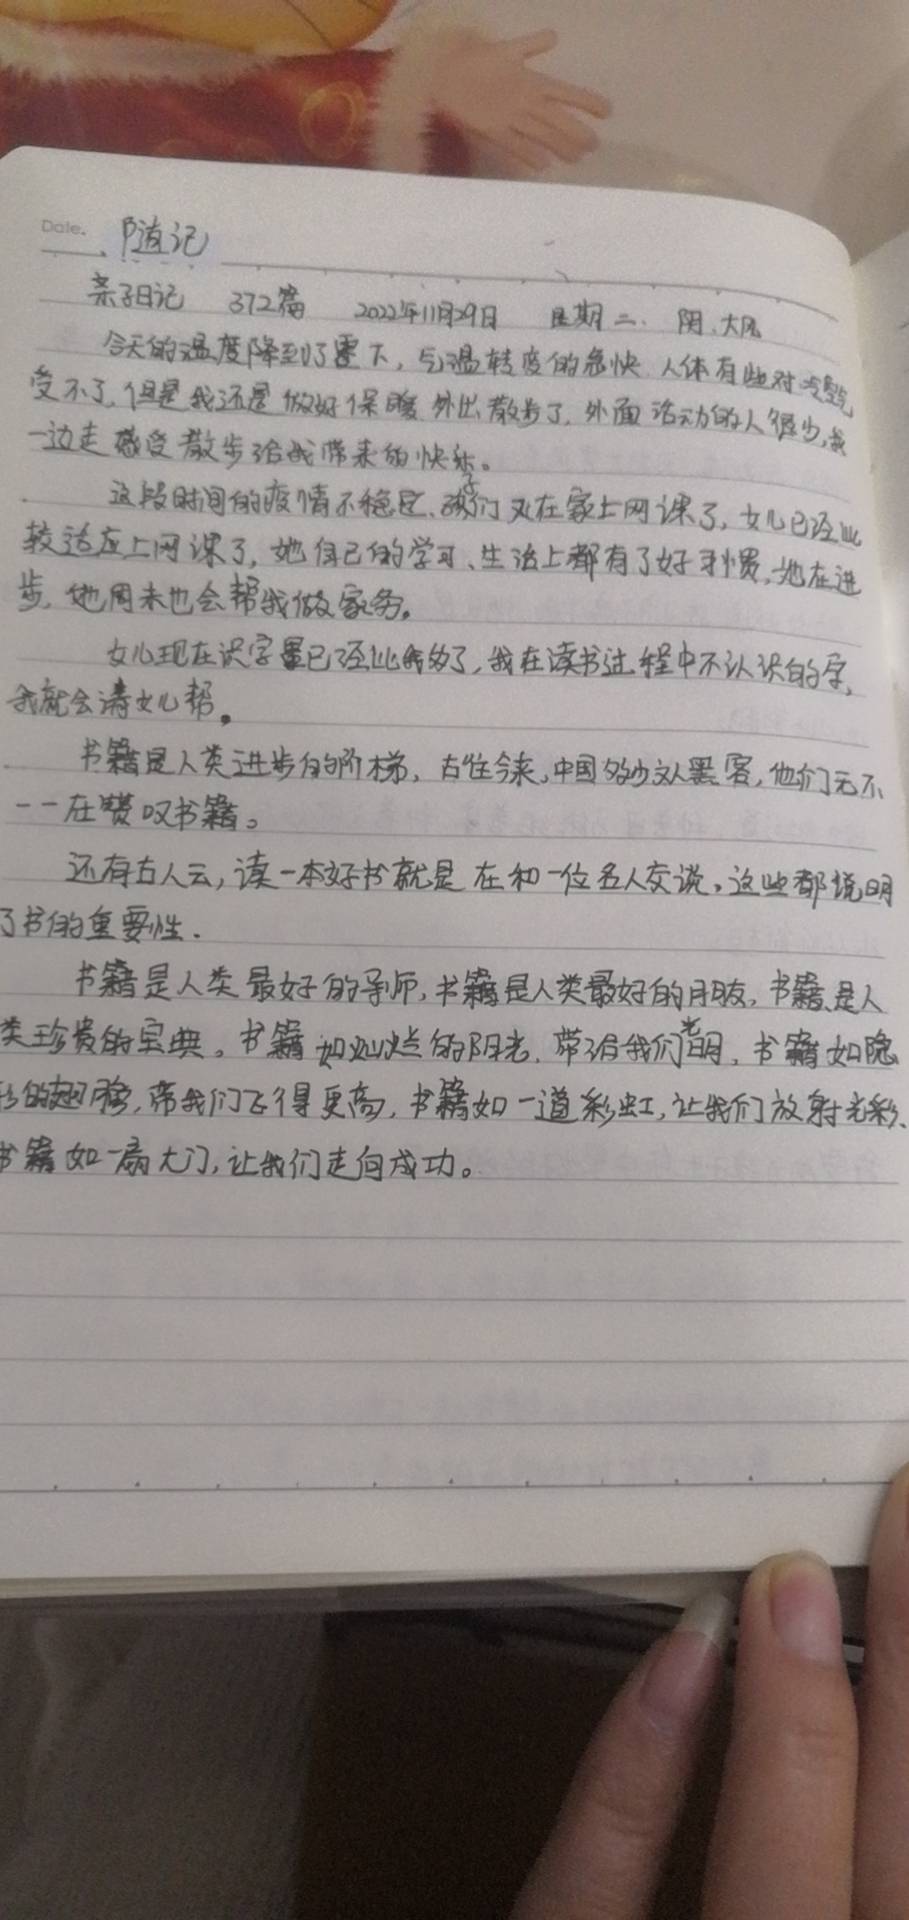 Date.
随记
亲子日记 372篇 2022年11月29日 星期二. 阴、大风
今天的温度降到了零下，气温转变的急快 人体有些对
受不了，但是我还是做好保暖 外出散步了，外面活动的人很少，我
一边走 感受散步给我带来的快乐。
这段时间的疫情不稳定、孩子们又在家上网课了，女儿已经比
较适应上网课了，她自己的学习、生活上都有了好习惯，她在进
步，她周末也会帮我做家务。
女儿现在识字量已经比我多了，我在读书过程中不认识的字，
我就会请女儿帮。
书籍是人类进步的阶梯，古往今来，中国多少文人墨客，他们无不
一一在赞叹书籍。
还有古人云，读一本好书就是 在和一位名人交谈。这些都说明
了书的重要性.
书籍是人类最好的导师，书籍是人类最好的朋友，书籍是人
类珍贵的宝典。书籍如灿烂的阳光，带给我们光明，书籍如隐
形的翅膀，带我们飞得更高，书籍如一道彩虹，让我们放射光彩、
书籍如一扇大门，让我们走向成功。